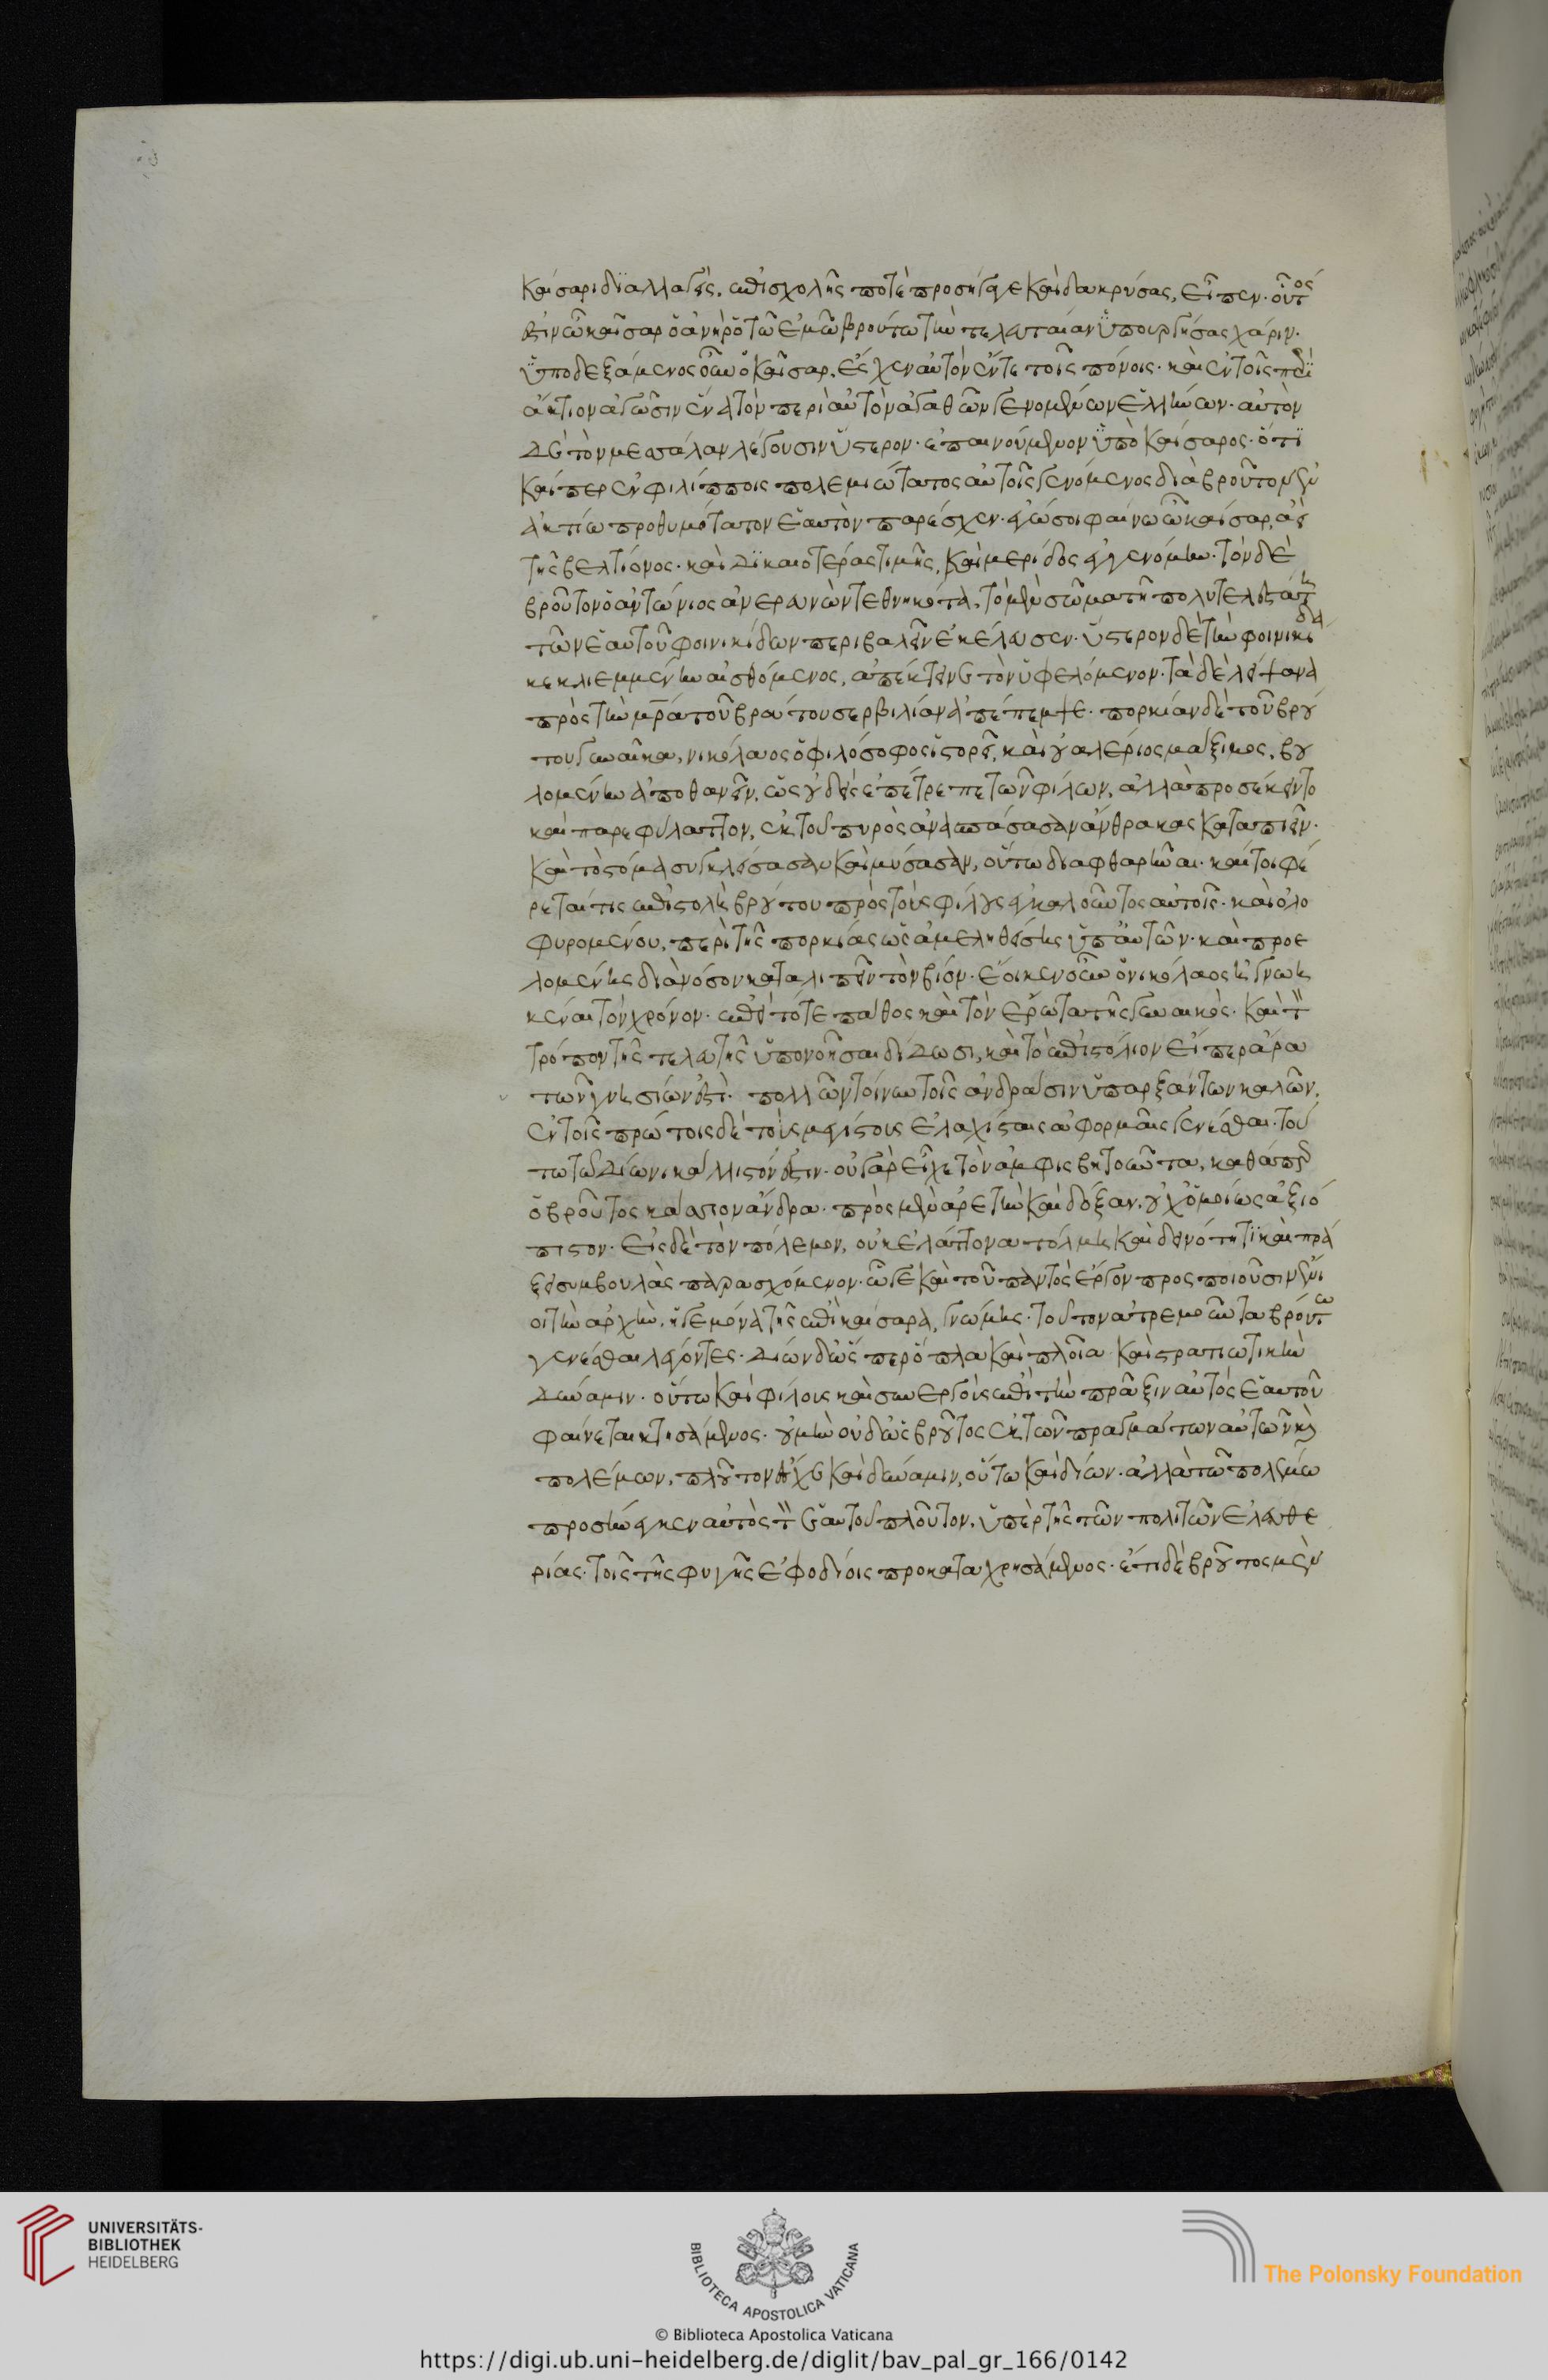 Καίσαρι διαλλαγείς, ἐπὶ σχολῆς ποτὲ προσήγαγε καὶ δακρύσας, εἶπεν· οὗτός
ἐστιν ὦ καῖσαρ ὁ ἀνὴρ ὁ τῶ ἐμῶ βρούτω τὴν τελευταίαν ὑπουργήσας χάριν·
ὑποδεξάμενος οὖν ὁ Καῖσαρ, ἔσχεν αὐτὸν ἔν τε τοῖς πόνοις· καὶ ἐν τοῖς περὶ
ἄκτιον ἀγῶσιν ἕνα τὸν περὶ αὐτὸν ἀγαθῶν γενομένων ἑλλήνων· αὐτὸν
δὲ τὸν μεσσάλαν λέγουσιν ὕστερον· ἐπαινούμενον ὑπὸ Καίσαρος· ὅτι
καίπερ ἐν φιλίπποις πολεμιώτατος αὐτοῖς γενόμενος διὰ βροῦτον ἐν
ἀκτίω προθυμότατον ἑαυτὸν παρέσχεν· ἐγώ σοι φαίνω ὦ καῖσαρ, ἀεὶ
τῆς βελτίονος· καὶ δικαιοτέρας τιμῆς, καὶ μερίδος ἐγενόμην· τὸν δὲ
βροῦτον ὁ ἀντώνιος ἀνευρὼν τεθνηκότα, τὸ μὲν σῶμα τῆ πολυτελεστάτη
τῶν ἑαυτοῦ φοινικίδων περιβαλεῖν ἐκέλευσεν· ὕστερον δὲ τὴν φοινικίδα
κεκλεμμένην αἰσθόμενος, ἀπέκτεινε τὸν ὑφελόμενον· τὰ δὲ λείψανα
πρὸς τὴν μρα τοῦ βρούτου σερβιλίαν ἀπέπεμψε· πορκίαν δὲ τοῦ βρού
του γυναῖκα, νικόλαος ὁ φιλόσοφος ἱστορεῖ, καὶ οὐαλέριος μάξιμος, βου
λομένην ἀποθανεῖν, ὡς οὐδεὶς ἐπέτρεπε τῶν φίλων, ἀλλὰ προσέκειντο
καὶ παρεφύλαττον, ἐκ τοῦ πυρὸς ἀναπάσασαν ἄνθρακας καταπιεῖν·
καὶ τὸ στόμα συγκλείσασαν καὶ μύσασαν, οὕτω διαφθαρῆναι· καίτοι φέ
ρεταί τις ἐπιστολὴ βρούτου πρὸς τοὺς φίλους ἐγκαλοῦντος αὐτοῖς· καὶ ὀλο
φυρομένου, περὶ τῆς πορκίας ὡς ἀμεληθείσης ὑπ' αὐτῶν· καὶ προε
λομένης διὰ νόσον καταλιπεῖν τὸν βίον· ἔοικεν οὖν ὁ νικόλαος ἠγνοη
κέναι τὸν χρόνον· ἐπεὶ τό τε πάθος καὶ τὸν ἔρωτα τῆς γυναικὸς· καὶ τὸν
τρόπον τῆς τελευτῆς ὑπονοῆσαι δίδωσι, καὶ τὸ ἐπιστόλιον εἴπερ ἄρα
τῶν γνησίων ἐστὶ· πολλῶν τοίνυν τοῖς ἀνδράσιν ὑπαρξάντων καλῶν,
ἐν τοῖς πρώτοις δὲ τοῖς μεγίστοις ἐλαχίσταις ἀφορμαῖς γενέσθαι· τοῦ
το τῶ Δίωνι κάλλιστόν ἐστιν· οὐ γὰρ εἶχε τὸν ἀμφισβητοῦντα, καθάπερ
ὁ βροῦτος κάσσιον ἄνδρα· πρὸς μὲν ἀρετὴν καὶ δόξαν, οὐχ ὁμοίως ἀξιό
πιστον· εἰς δὲ τὸν πόλεμον, οὐκ ἐλάττονα τόλμη καὶ δεινότητι καὶ πρά
ξει συμβουλὰς παρασχόμενον· ὧ γε καὶ τοῦ παντὸς ἔργον προσποιοῦσιν ἔνι
οι τὴν ἀρχὴν, ἡγεμόνα τῆς ἐπὶ καίσαρα, γνώμης· τοῦτον ἀτρεμοῦντα βρούτω
γενέσθαι λέγοντες· Δίων δ' ὥσπερ ὅπλα καὶ πλοῖα καὶ στρατιωτικὴν
δύναμιν· οὕτω καὶ φίλους καὶ συνεργοὺς ἐπὶ τὴν πρᾶξιν αὐτὸς ἑαυτοῦ
φαίνεται κτησάμενος· οὐ μὴν οὐδ' ὡς βροῦτος ἐκ τῶν πραγμάτων αὐτῶν καὶ
πολέμων, πλοῦτον ἔσχε καὶ δύναμιν, οὕτω καὶ δίων· ἀλλὰ τῶ πολέμω
προσήνεγκεν αὐτὸς τὸν ἑαυτοῦ πλοῦτον, ὑπὲρ τῆς τῶν πολιτῶν ἐλευθε
ρίας· τοῖς τῆς φυγῆς ἐφοδίοις προκαταχρησάμενος· ἔτι δὲ βροῦτος μὲν
UNIVERSITÄTS-
BIBLIOTHEK
HEIDELBERG
BIBLIOTECA APOSTOLICA VATICANA
© Biblioteca Apostolica Vaticana
The Polonsky Foundation
https://digi.ub.uni-heidelberg.de/diglit/bav_pal_gr_166/0142